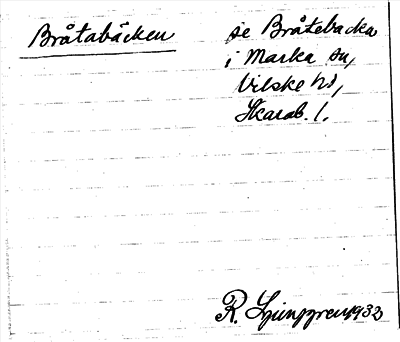 Bråtabäcken
se Bråtebacka
i Marka sn,
Vilske hd,
Skarab. l.
R. Ljunggren 1932